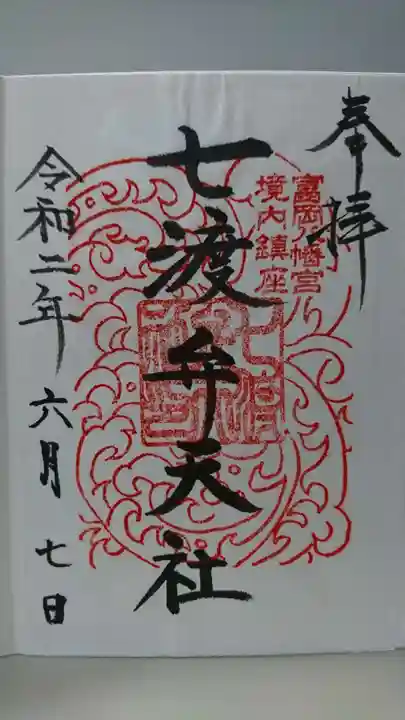 奉拝
富岡八幡宮
境内鎮座
七渡弁天社
令和二年 六月 七日